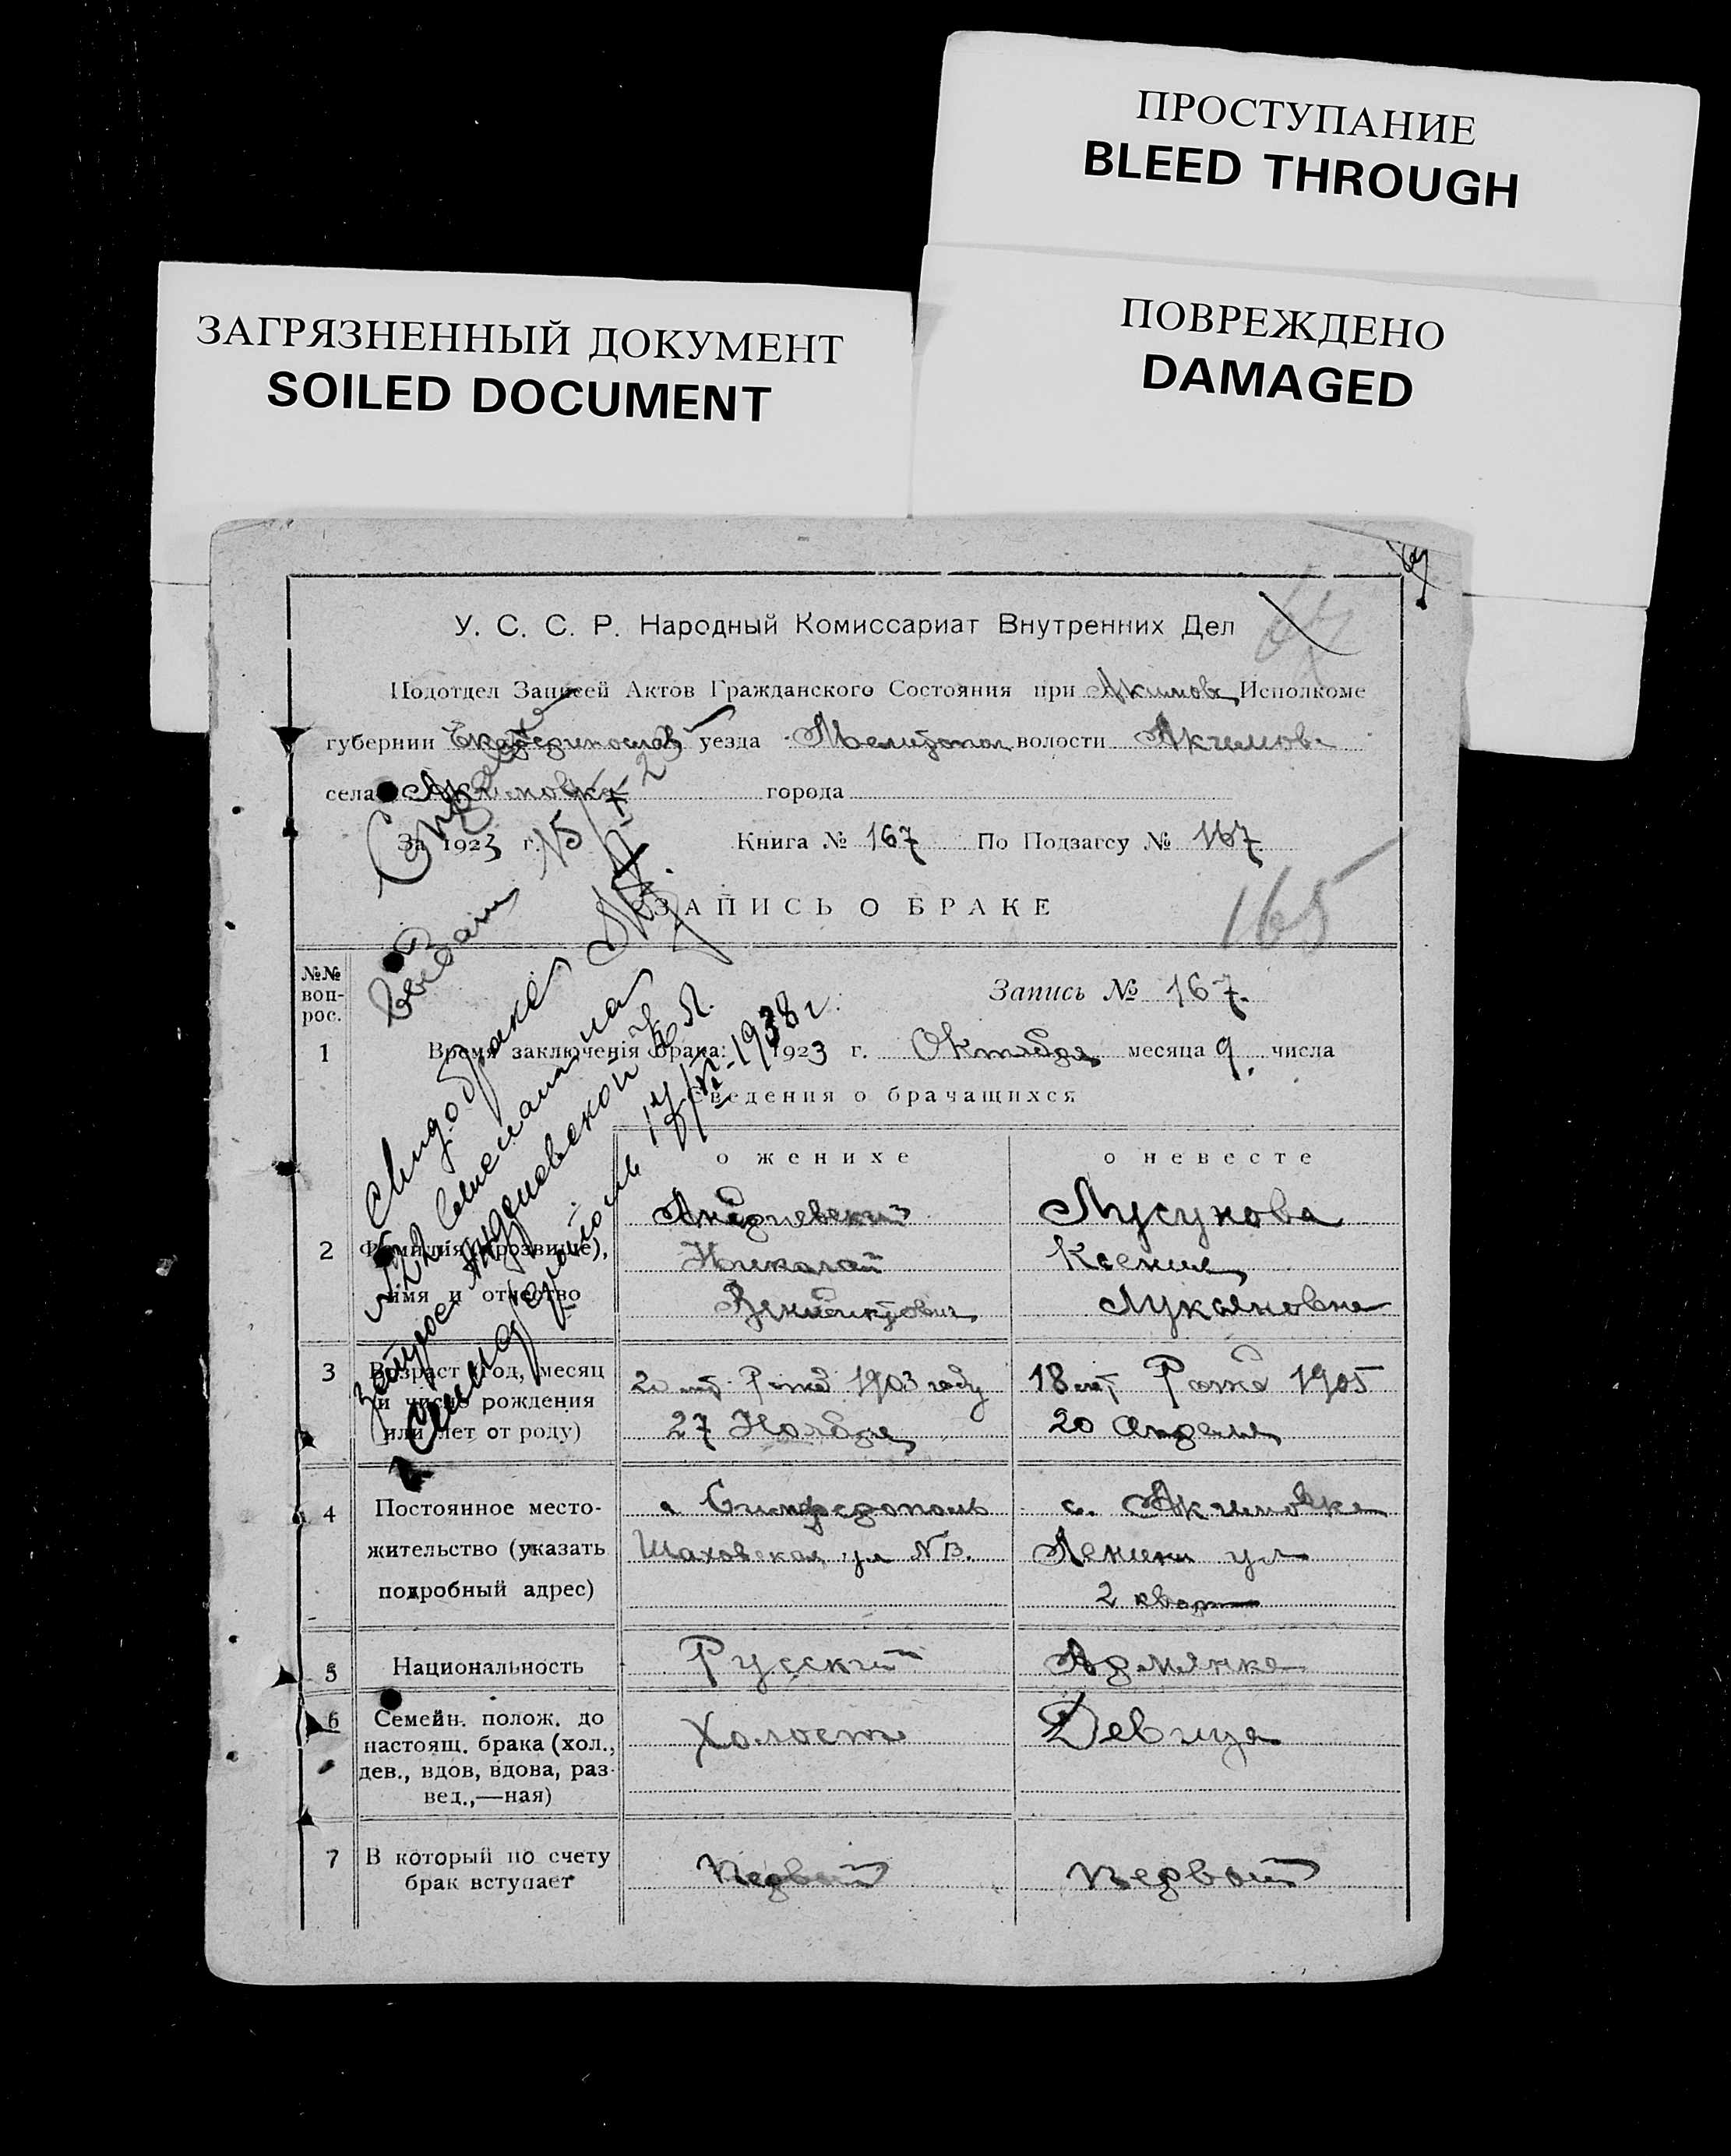 ПРОСТУПАНИЕ
BLEED THROUGH
ПОВРЕЖДЕНО
DAMAGED
ЗАГРЯЗНЕННЫЙ ДОКУМЕНТ
SOILED DOCUMENT
У. С. С. Р. Народный Комиссариат Внутренних Дел
Подотдел Записей Актов Гражданского Состояния при Акимов Исполкоме
губернии Екатеринослав уезда Мелитопол волости Акимов
села Акимовка города
За 1923 г. Книга № 167 По Подзагсу № 167
ЗАПИСЬ О БРАКЕ
165
№№ воп-рос.
Запись № 167.
1 Время заключенія брака: 1923 г. Октября месяца 9 числа
Сведения о брачащихся
о женихе о невесте
Мусукова
2 Фамилия (прозвище), Николай Ксения
имя и отчество Лукьяновна
3 Возраст (год, месяц 20 лет 1903 году 18 лет 1905
и число рождения 27 Ноября 20 Апреля
или лет от роду)
4 Постоянное место- г Симферополь с. Акимовка
жительство (указать Шаховская ул Ленина ул
подробный адрес) 2 кварт
5 Национальность Русский Армянка
6 Семейн. полож. до Холост Девица
настоящ. брака (хол.,
дев., вдов, вдова, раз-
вед.,—ная)
7 В который по счету Первый Первый
брак вступает
Справка
Выдан
свид. о браке
на
запрос Андриевской К Л.
г Симферополь 17/VI-1938 г.